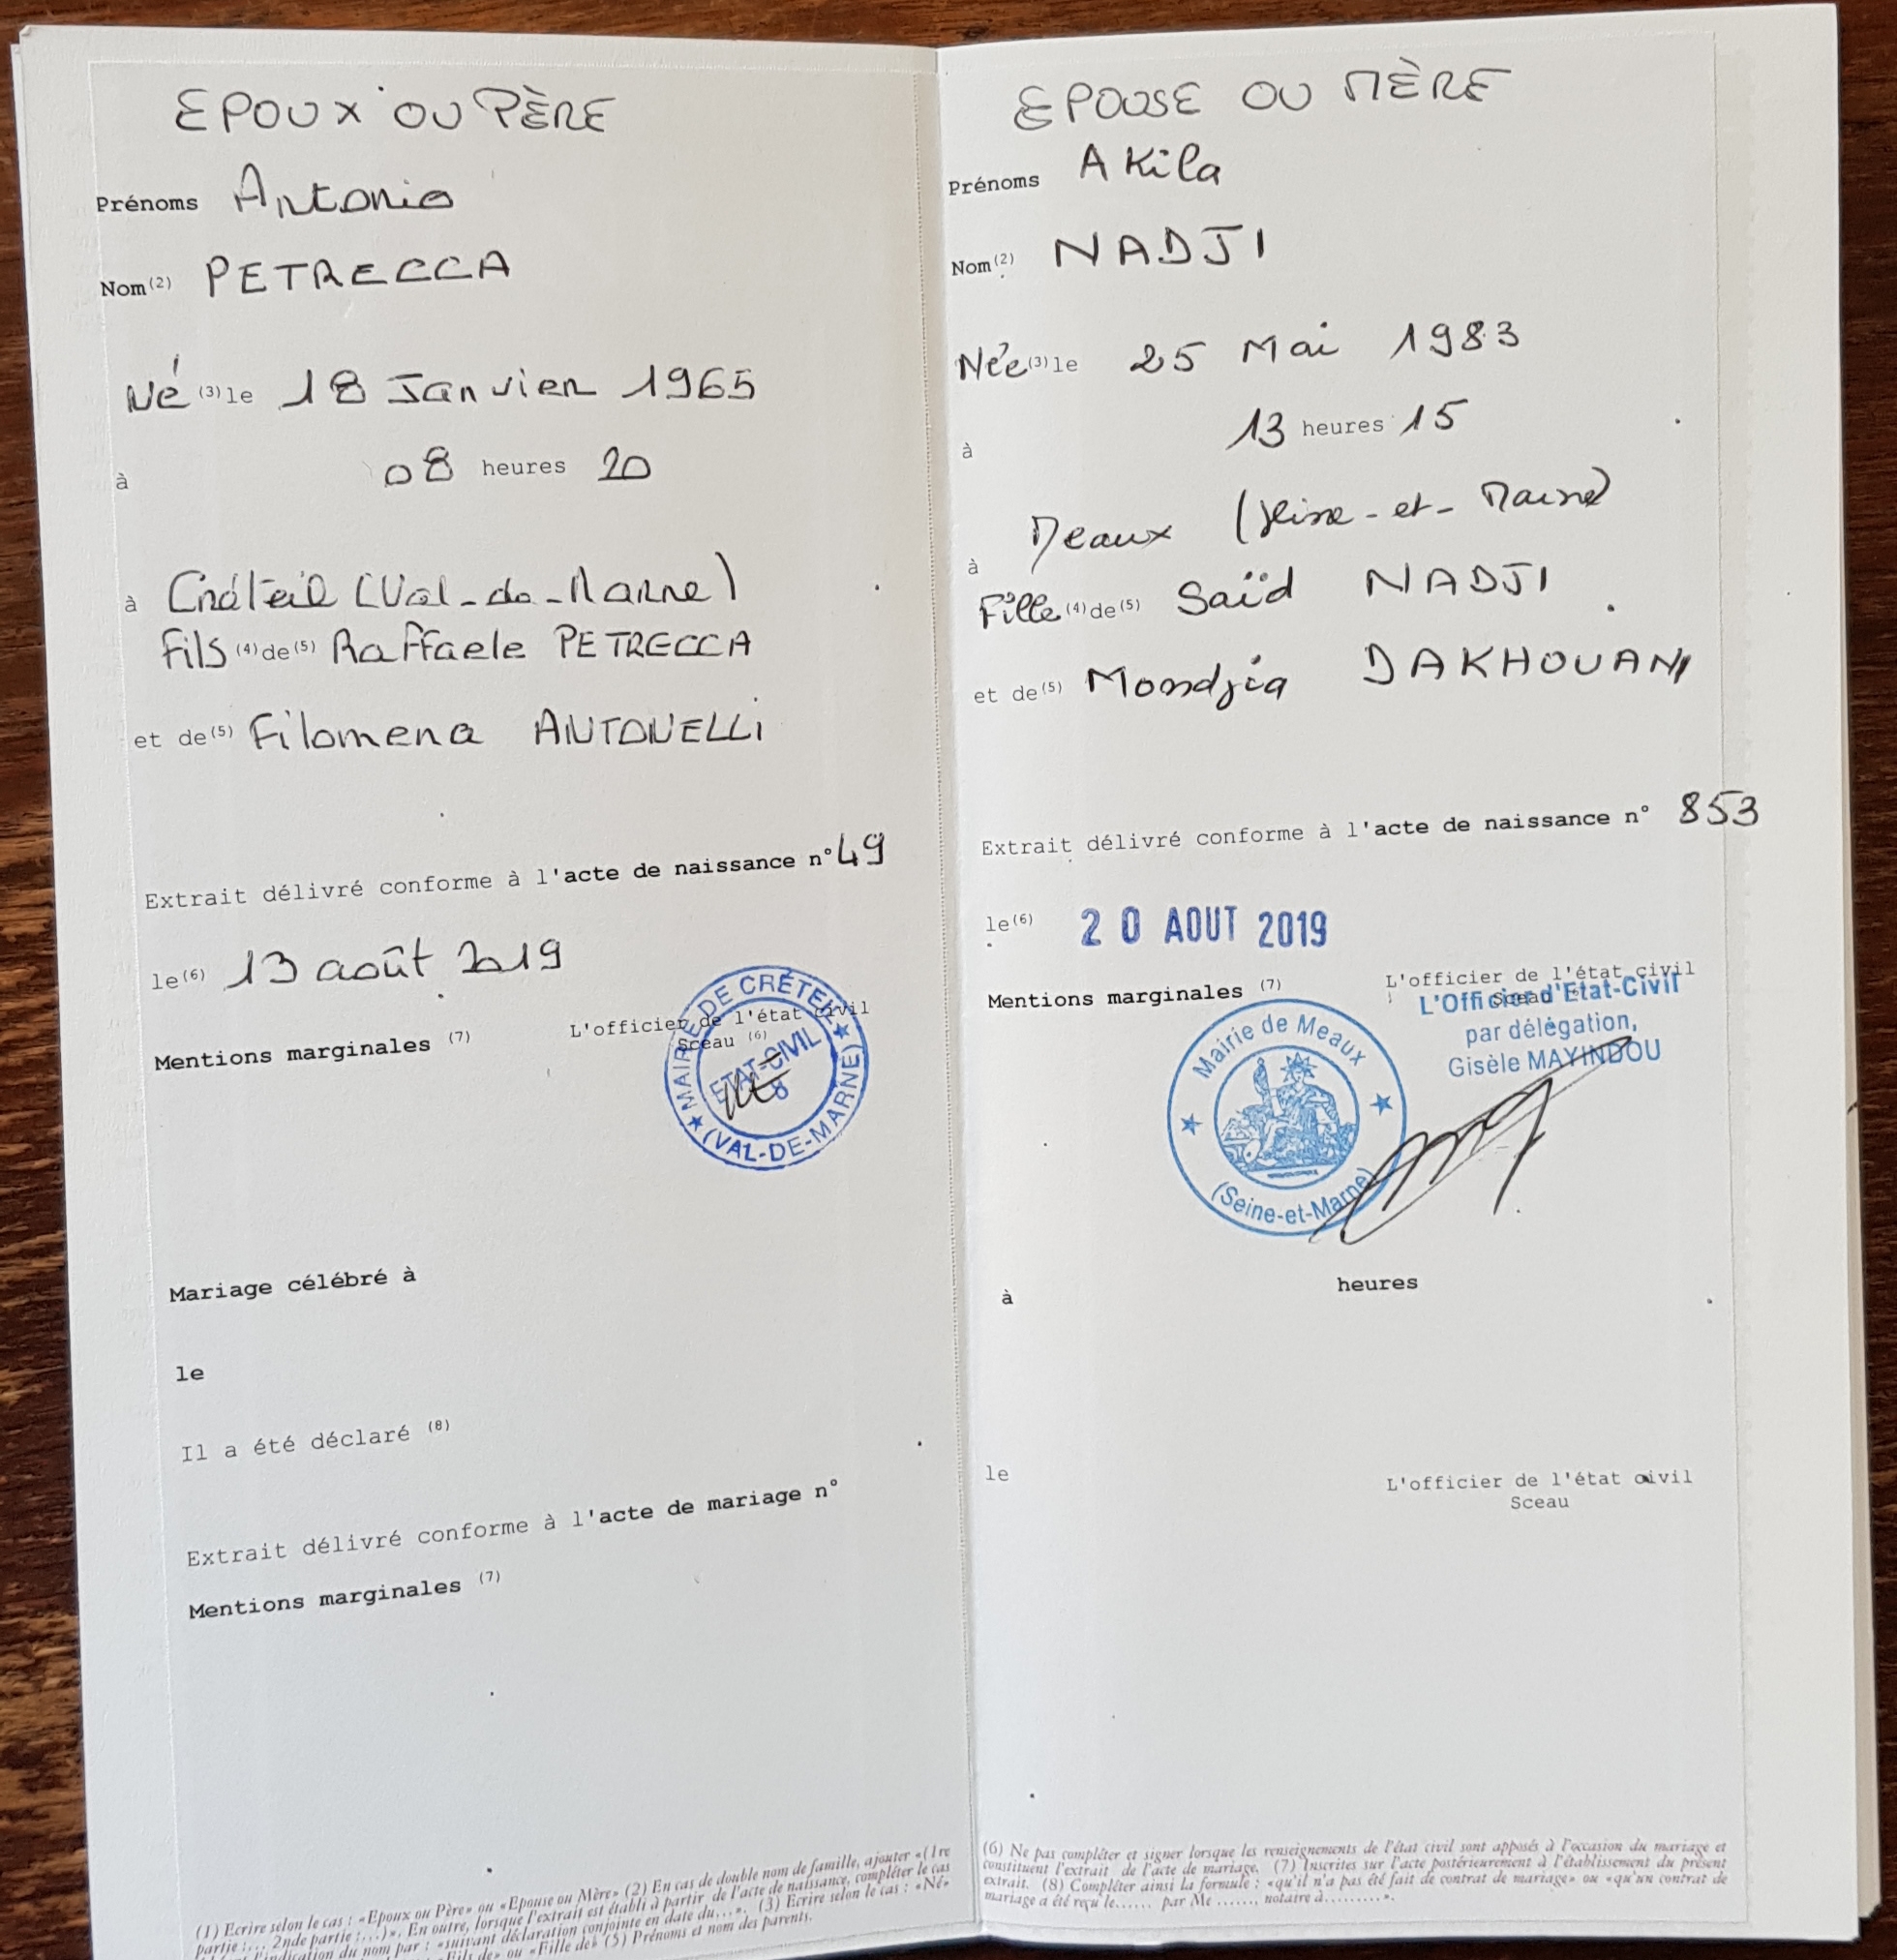 EPOUX OU PÈRE
Prénoms Antonio
Nom (2) PETRECCA
Né (3) le 18 Janvier 1965
à 08 heures 20
à Créteil (Val-de-Marne)
Fils (4) de (5) Raffaele PETRECCA
et de (5) Filomena ANTONELLi
Extrait délivré conforme à l'acte de naissance n° 49
le (6) 13 août 2019
Mentions marginales (7)
L'officier de l'état civil
Sceau (6)
MAIRIE DE CRÉTEIL
ETAT-CIVIL
8
(VAL-DE-MARNE)
Mariage célébré à
le
Il a été déclaré (8)
Extrait délivré conforme à l'acte de mariage n°
Mentions marginales (7)
(1) Ecrire selon le cas : «Epoux ou Père» ou «Epouse ou Mère» (2) En cas de double nom de famille, ajouter «(1re
partie :... 2nde partie :...)». En outre, lorsque l'extrait est établi à partir de l'acte de naissance, compléter le cas
l'indication du nom par : «suivant déclaration conjointe en date du...». (3) Ecrire selon le cas : «Né»
«Fils de» ou «Fille de» (5) Prénoms et nom des parents.
EPOUSE OU MÈRE
Prénoms AKila
Nom (2) NADJI
Née (3) le 25 Mai 1983
à 13 heures 15
à Meaux (Seine-et-Marne)
Fille (4) de (5) Saïd NADJI
et de (5) Mondjia DAKHOUANI
Extrait délivré conforme à l'acte de naissance n° 853
le (6) 20 AOUT 2019
Mentions marginales (7)
L'officier de l'état civil
Sceau
L'Officier d'Etat-Civil
par délégation,
Gisèle MAYINDOU
Mairie de Meaux
(Seine-et-Marne)
à heures
le
L'officier de l'état civil
Sceau
(6) Ne pas compléter et signer lorsque les renseignements de l'état civil sont apposés à l'occasion du mariage et
constituent l'extrait de l'acte de mariage. (7) Inscrites sur l'acte postérieurement à l'établissement du présent
extrait. (8) Compléter ainsi la formule : «qu'il n'a pas été fait de contrat de mariage» ou «qu'un contrat de
mariage a été reçu le...... par Me ......., notaire à.........».